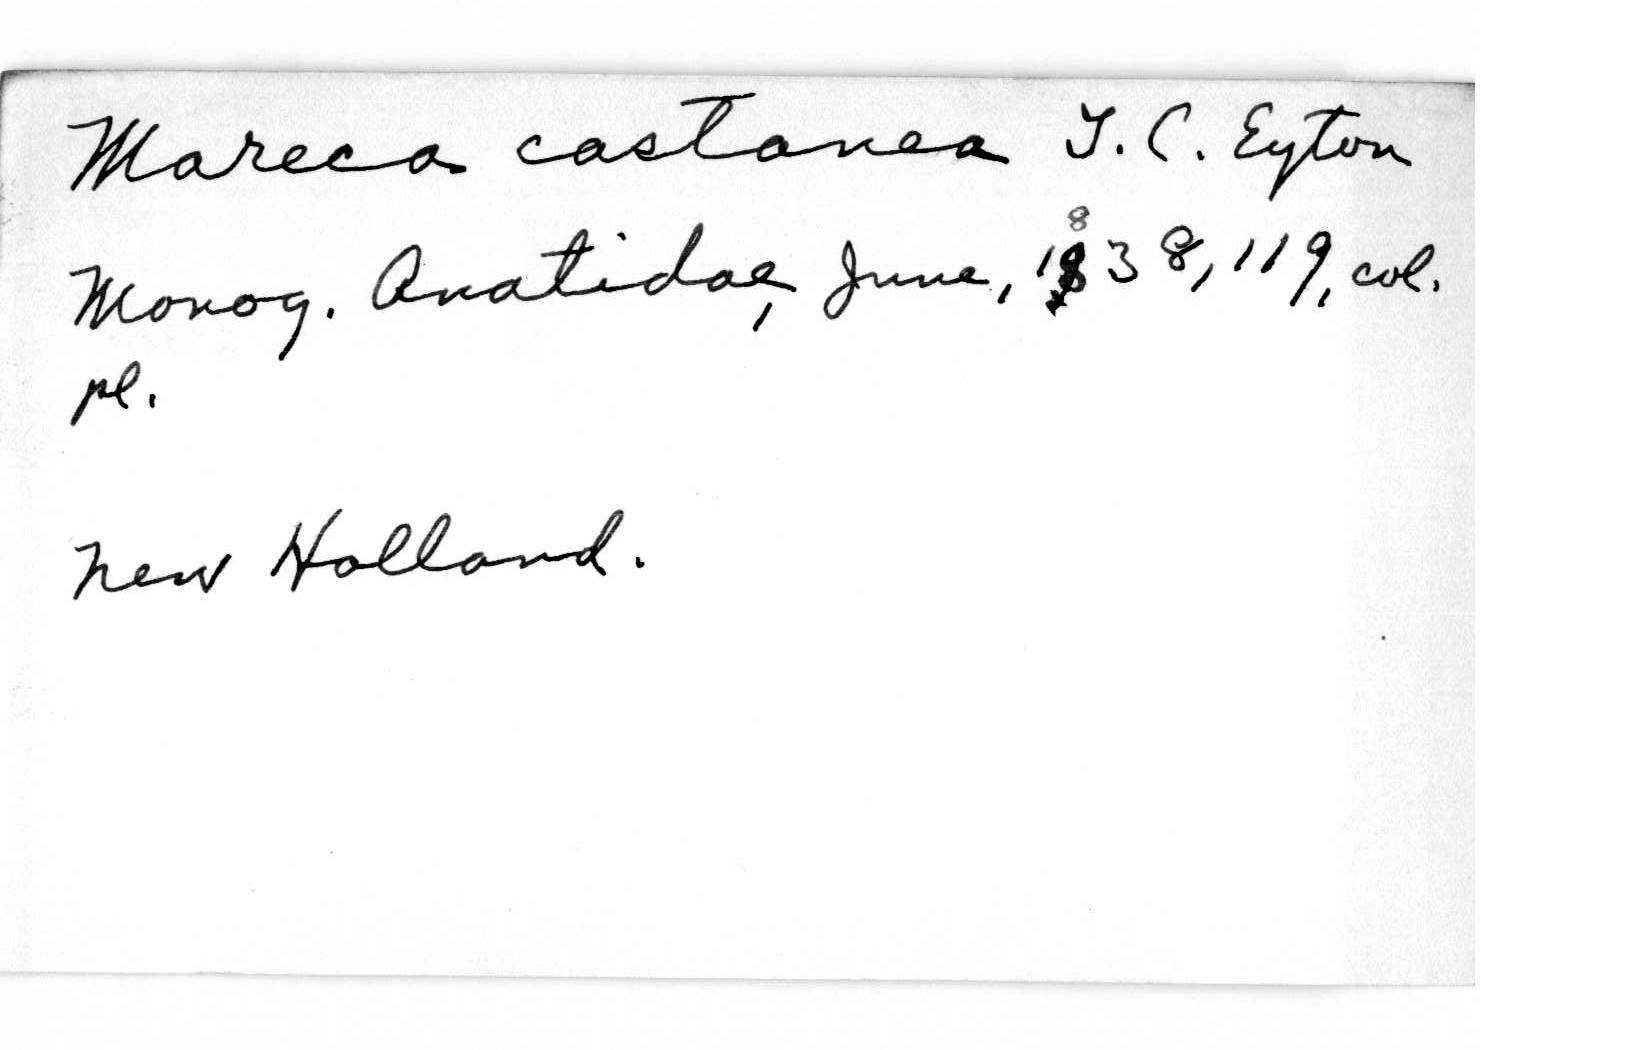 Mareca castanea T. C. Eyton
Monog. Anatidae, June, 1838, 119, col.
pl.
New Holland.